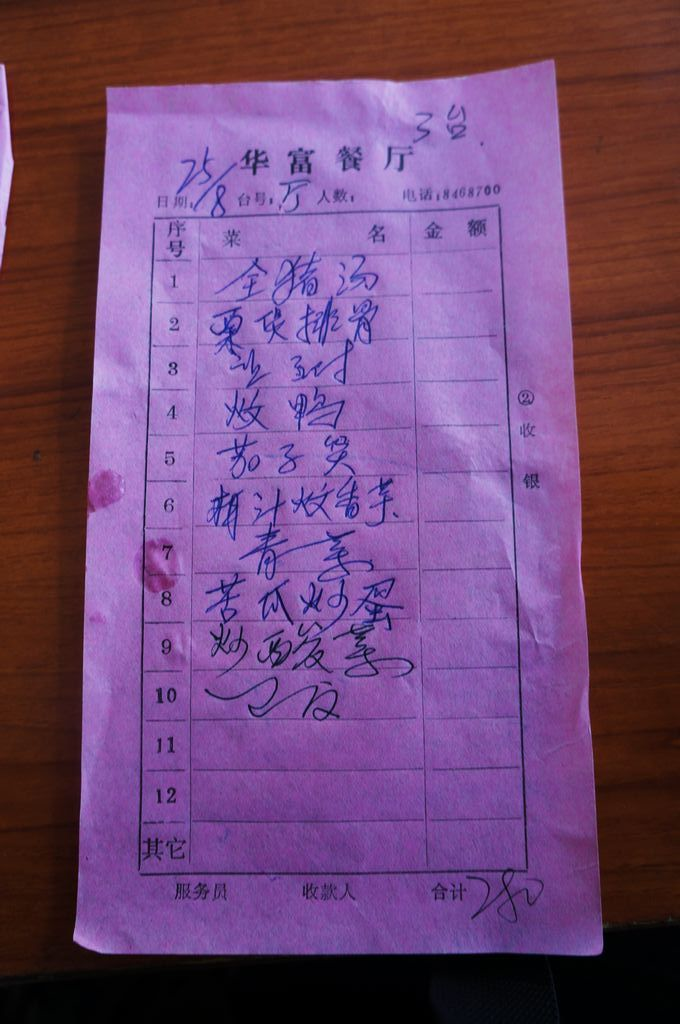 3台.
华富餐厅
日期: 25/8 台号: 厅 人数: 电话: 8468700
序号 菜名 金额
1 全猪汤
2 排骨
3
4 炆鸭
5 茄子煲
6 汁炆香芋
7 青菜
8 苦瓜炒蛋
9 炒酸菜
10
11
12
其它
② 收银
服务员 收款人 合计 280